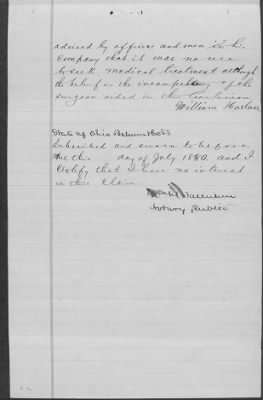 advised by officers and men of the
Company that it was no use
to seek medical treatment although
the belief in the incompetency of the
surgeon aided in this conclusion
William Harlan
State of Ohio
Subscribed and sworn to before
me this day of July 1880. and I
Certify that I have no interest
in this Claim
Notary Public